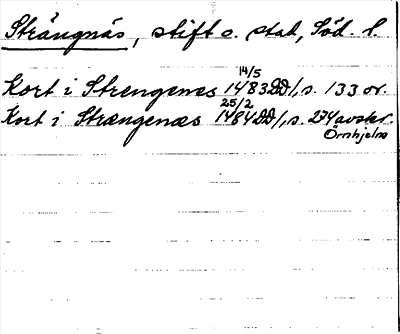 Strängnäs, stift o. stad, Söd. l.
14/5
Kort i Strengenes 1483 DD/, s. 133 or.
25/2
Kort i Strængenæs 1484 DD/, s. 274 avskr.
Örnhjelm